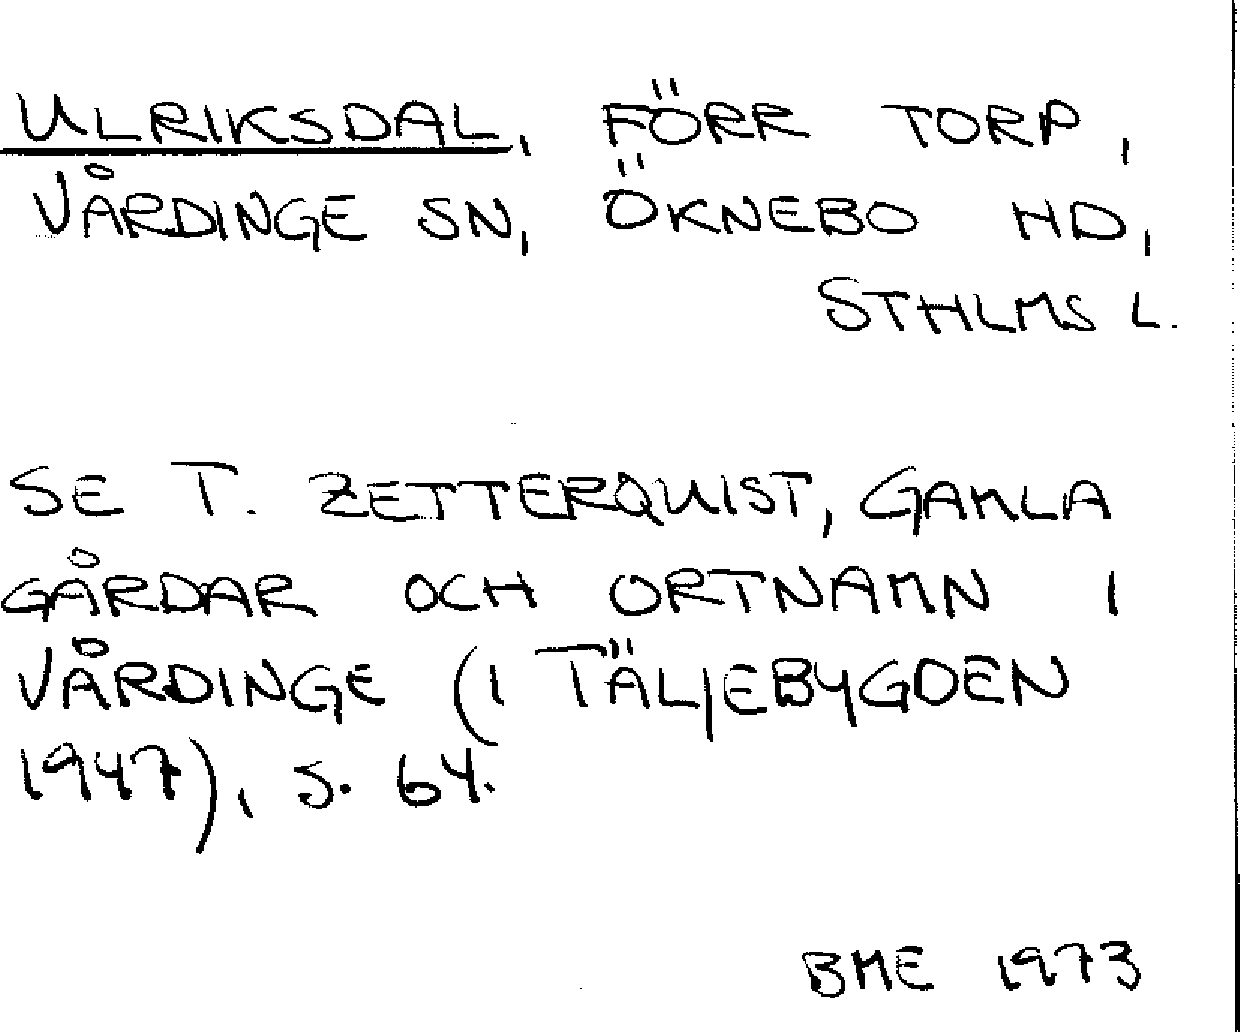 ULRIKSDAL, FÖRR TORP,
VÅRDINGE SN, ÖKNEBO HD,
STHLMS L.
SE T. ZETTERQUIST, GAMLA
GÅRDAR OCH ORTNAMN I
VÅRDINGE (I TÄLJEBYGDEN
1947), S. 64.
BME 1973